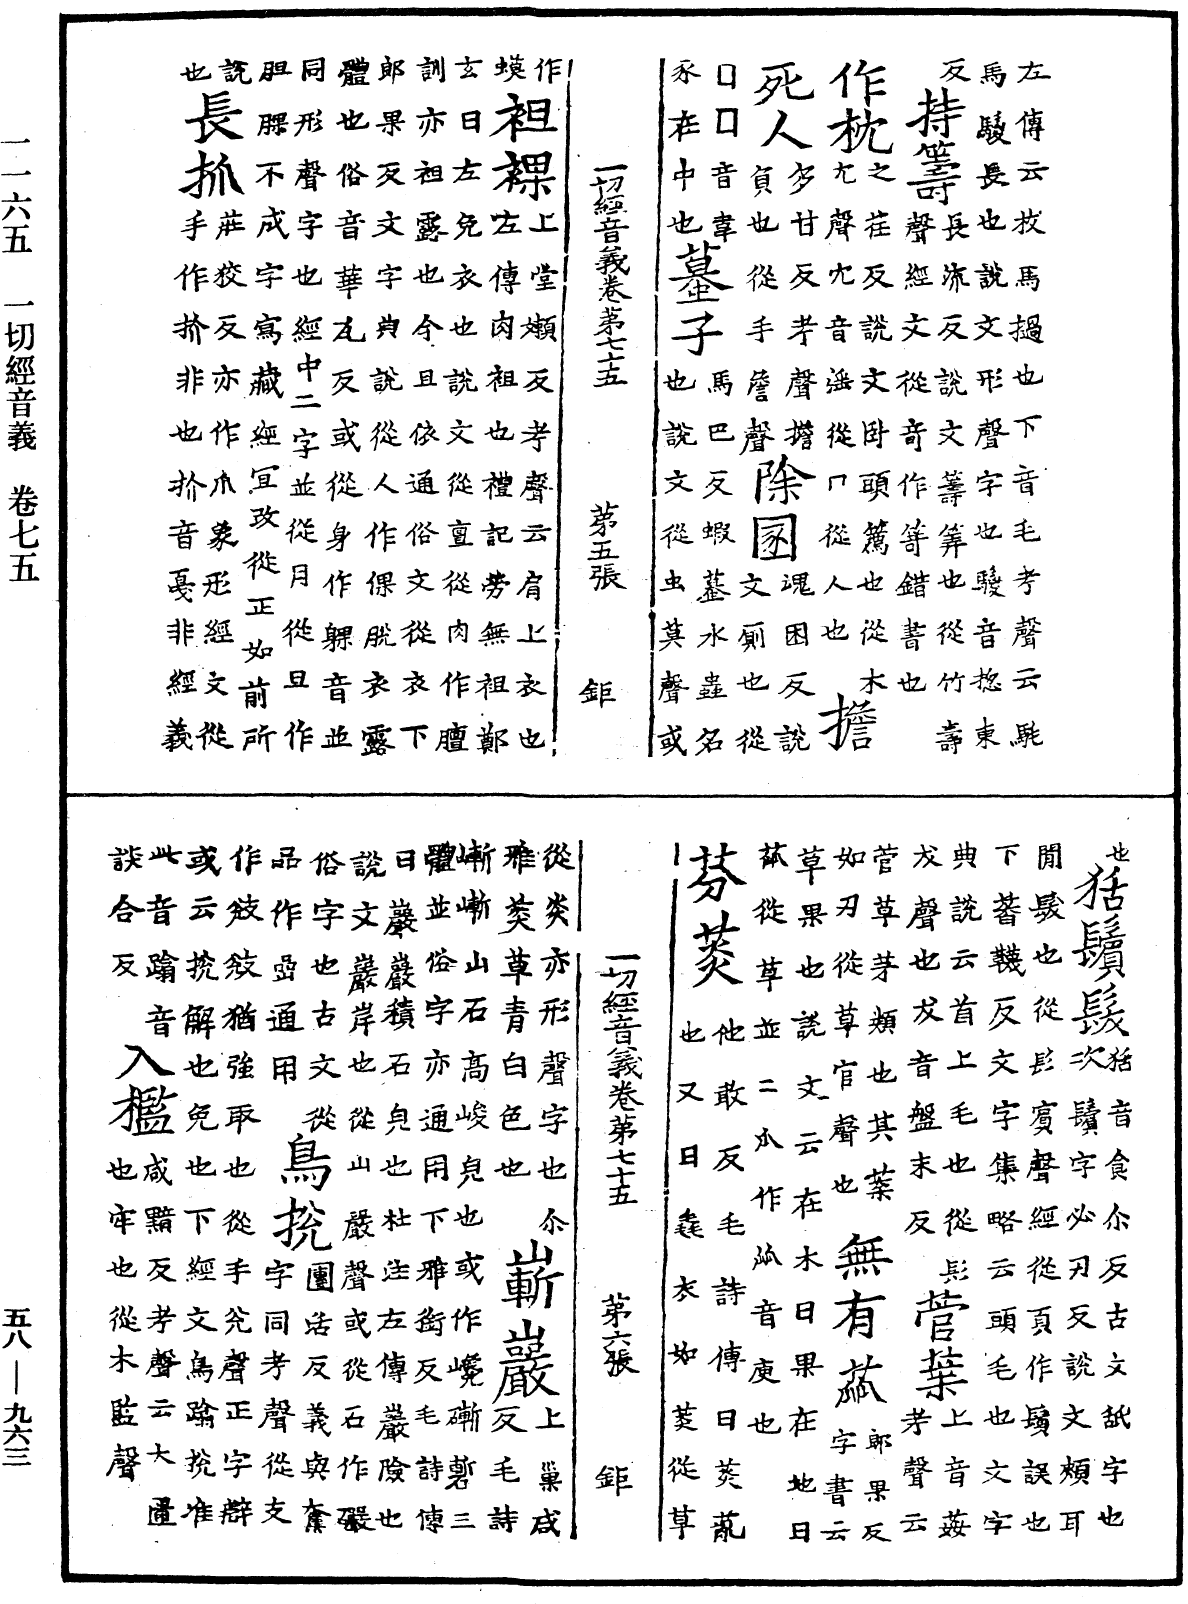 左傳云枚馬撾也下音毛考聲云駞
馬騣長也說文形聲字也騣音揔東
反持籌長流反說文籌筭也從竹壽
聲經文從奇作䈎錯書也
作枕之荏反說文卧頭篤也從木
冘聲冘音滛從冂從人也擔
死人多甘反考聲擔
負也從手詹聲除圂魂困反說
文厠也從
口口音韋馬巴反蝦蟇水蟲名
豕在中也蟇子也說文從虫莫聲或
一切經音義卷第七十五 第五張 鉅
作袒裸上堂嬾反考聲云肩上衣也
蟆左傳肉袒也禮記勞無袒鄭
玄曰左免衣也說文從亶從肉作膻
訓亦袒露也今且依通俗文從衣下
郎果反文字典說從人作倮脫衣露
體也俗音華瓦反或從身作躶音並
同形聲字也經中二字並從月從旦作
胆腂不成字寫藏經冝改從正如前所
說長抓莊狡反亦作爪象形經文從
也手作抓非也抓音戞非經義
也𤞶鬚髮𤞶音食尒反古文䑛字也
次鬚字必刃反說文頰耳
閒髮也從髟賔聲經從頁作鬚誤也
下蕃韈反文字集略云頭毛也文字
典說云首上毛也從髟
犮聲也犮音盤末反菅葉上音姦
考聲云
菅草茅類也其葉
如刃從草官聲也無有蓏郎果反
字書云
草果也說文云在木曰果在地曰
蓏從草並二瓜作㼌音庾也
芬菼他敢反毛詩傳曰菼薍
也又曰毳衣如菼從草
一切經音義卷第七十五 第六張 鉅
從炎亦形聲字也尒
雅菼草青白色也嶄巖上巢咸
反毛詩
嶄嶄山石高峻皃也或作巉磛㟻三
體並俗字亦通用下雅銜反毛詩傳
曰巖巖積石皃也杜注左傳巖險也
說文巖岸也從山嚴聲或從石作礹
俗字也古文從
品作喦通用鳥挩團活反義與奪
字同考聲從支
作敓敓猶強取也從手兊聲正字辯
或云挩解也免也下經文鳥踰挩准
此音踰音入檻咸黯反考聲云大匱
談合反也牢也從木監聲
一一六五 一切經音義 卷七五
五八—九六三